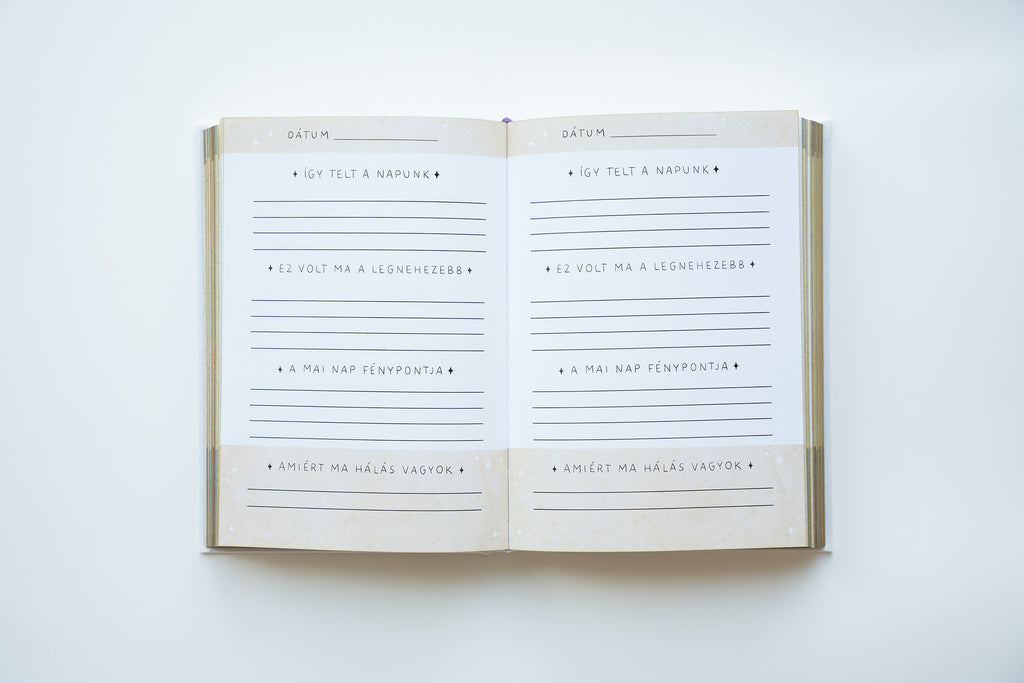 DÁTUM
✦ ÍGY TELT A NAPUNK ✦
✦ EZ VOLT MA A LEGNEHEZEBB ✦
✦ A MAI NAP FÉNYPONTJA ✦
✦ AMIÉRT MA HÁLÁS VAGYOK ✦
DÁTUM
✦ ÍGY TELT A NAPUNK ✦
✦ EZ VOLT MA A LEGNEHEZEBB ✦
✦ A MAI NAP FÉNYPONTJA ✦
✦ AMIÉRT MA HÁLÁS VAGYOK ✦